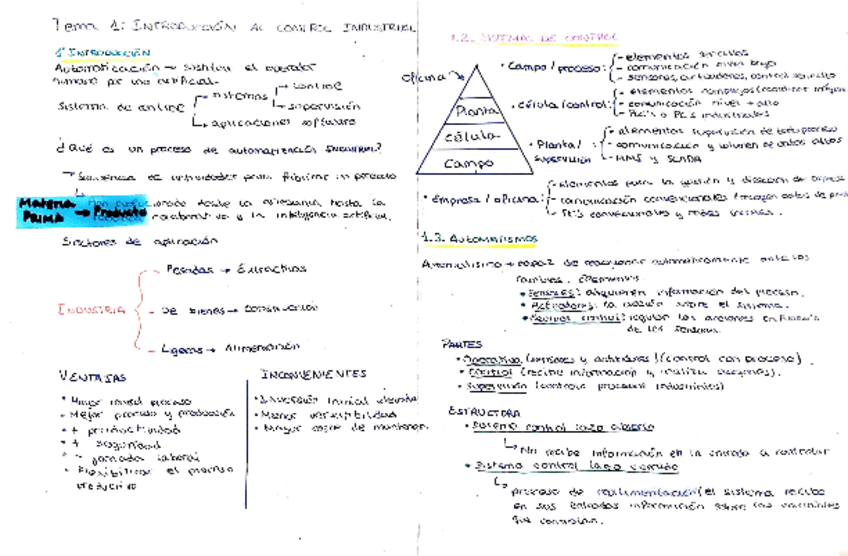 Tema 1: INTRODUCCIÓN AL CONTROL INDUSTRIAL
1. INTRODUCCIÓN
Automatización → sustituir el operador
humano por uno artificial.
Sistemas de control
sistemas
control
supervisión
aplicaciones software
¿Qué es un proceso de automatización INDUSTRIAL?
→ Secuencia de actividades para fabricar un producto
Materia PRIMA → Producto
Han evolucionado desde la artesanía hasta la
robótica colaborativa y la inteligencia artificial.
Sectores de aplicación
INDUSTRIA
- Pesadas → Extractivas
- De bienes → construcción
- Ligeras → Alimentación
VENTAJAS
• Mejor proceso y producción
• + productividad
• + seguridad
• - jornada laboral
• Flexibilizar el proceso
productivo
INCONVENIENTES
• Inversión inicial elevada
• Menor versatibilidad
• Mayor coste de mantener.
1.2. SISTEMAS DE CONTROL
oficina
Planta
célula
Campo
• Campo / proceso:
- elementos sencillos
- comunicación nivel bajo
- sensores, actuadores, control sencillo
• célula / control:
- elementos complejos
- comunicación nivel + alto
- PLC's o PC's industriales
• Planta / supervisión
- elementos supervisión de todo proceso
- comunicación y volumen de datos altos
- HMI y SCADA
• empresa / oficina:
- elementos para la gestión y dirección de empresa
- comunicación convencionales
- PC's convencionales y redes
1.3. AUTOMATISMOS
Automatismo → capaz de reaccionar automáticamente ante los
cambios. Elementos
• Sensores: adquieren información del proceso.
• Actuadores: la acción sobre el sistema.
control: regular las acciones en función
de los sensores.
PARTES
• Operativa (sensores y actuadores) (control con proceso)
• Control (recibe información y realiza acciones).
• Supervisión (controla procesos industriales)
ESTRUCTURA
• Sistema control lazo abierto
↳ No recibe información en la entrada a controlar
• Sistema control lazo cerrado
↳ proceso de realimentación (el sistema recibe
en sus entradas información sobre las variables
que controlan.